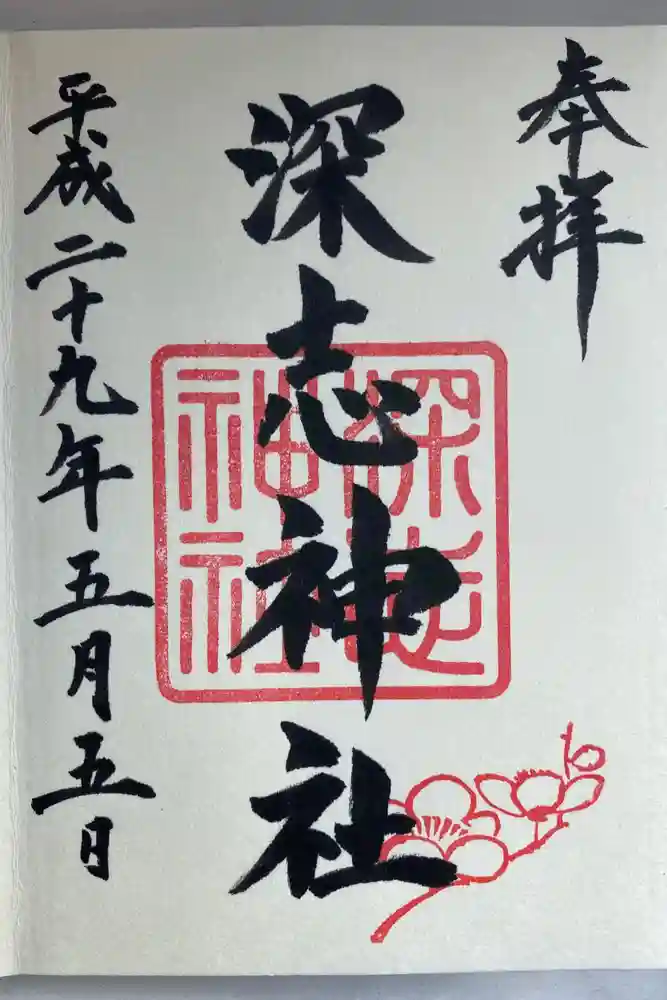 奉拝
深志神社
平成二十九年五月五日
深志
神社